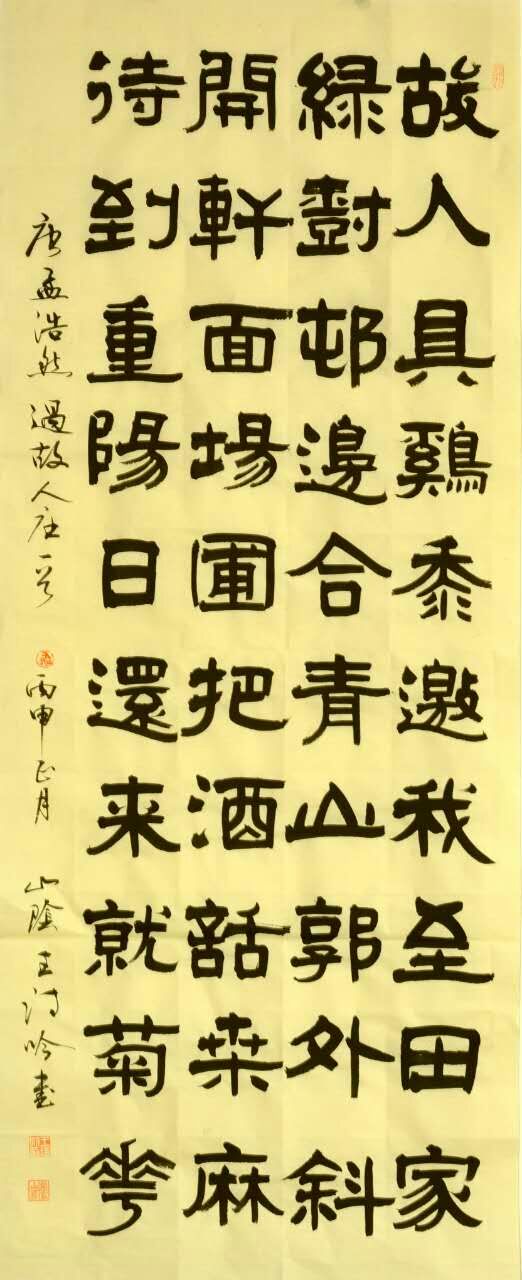 故人具鷄黍邀我至田家
緑尌邨邊合青山郭外斜
開軒面場圃把酒話桒麻
待到重陽日還来就菊華
唐孟浩然過故人庄一首 丙申正月 山陰王诗吟書